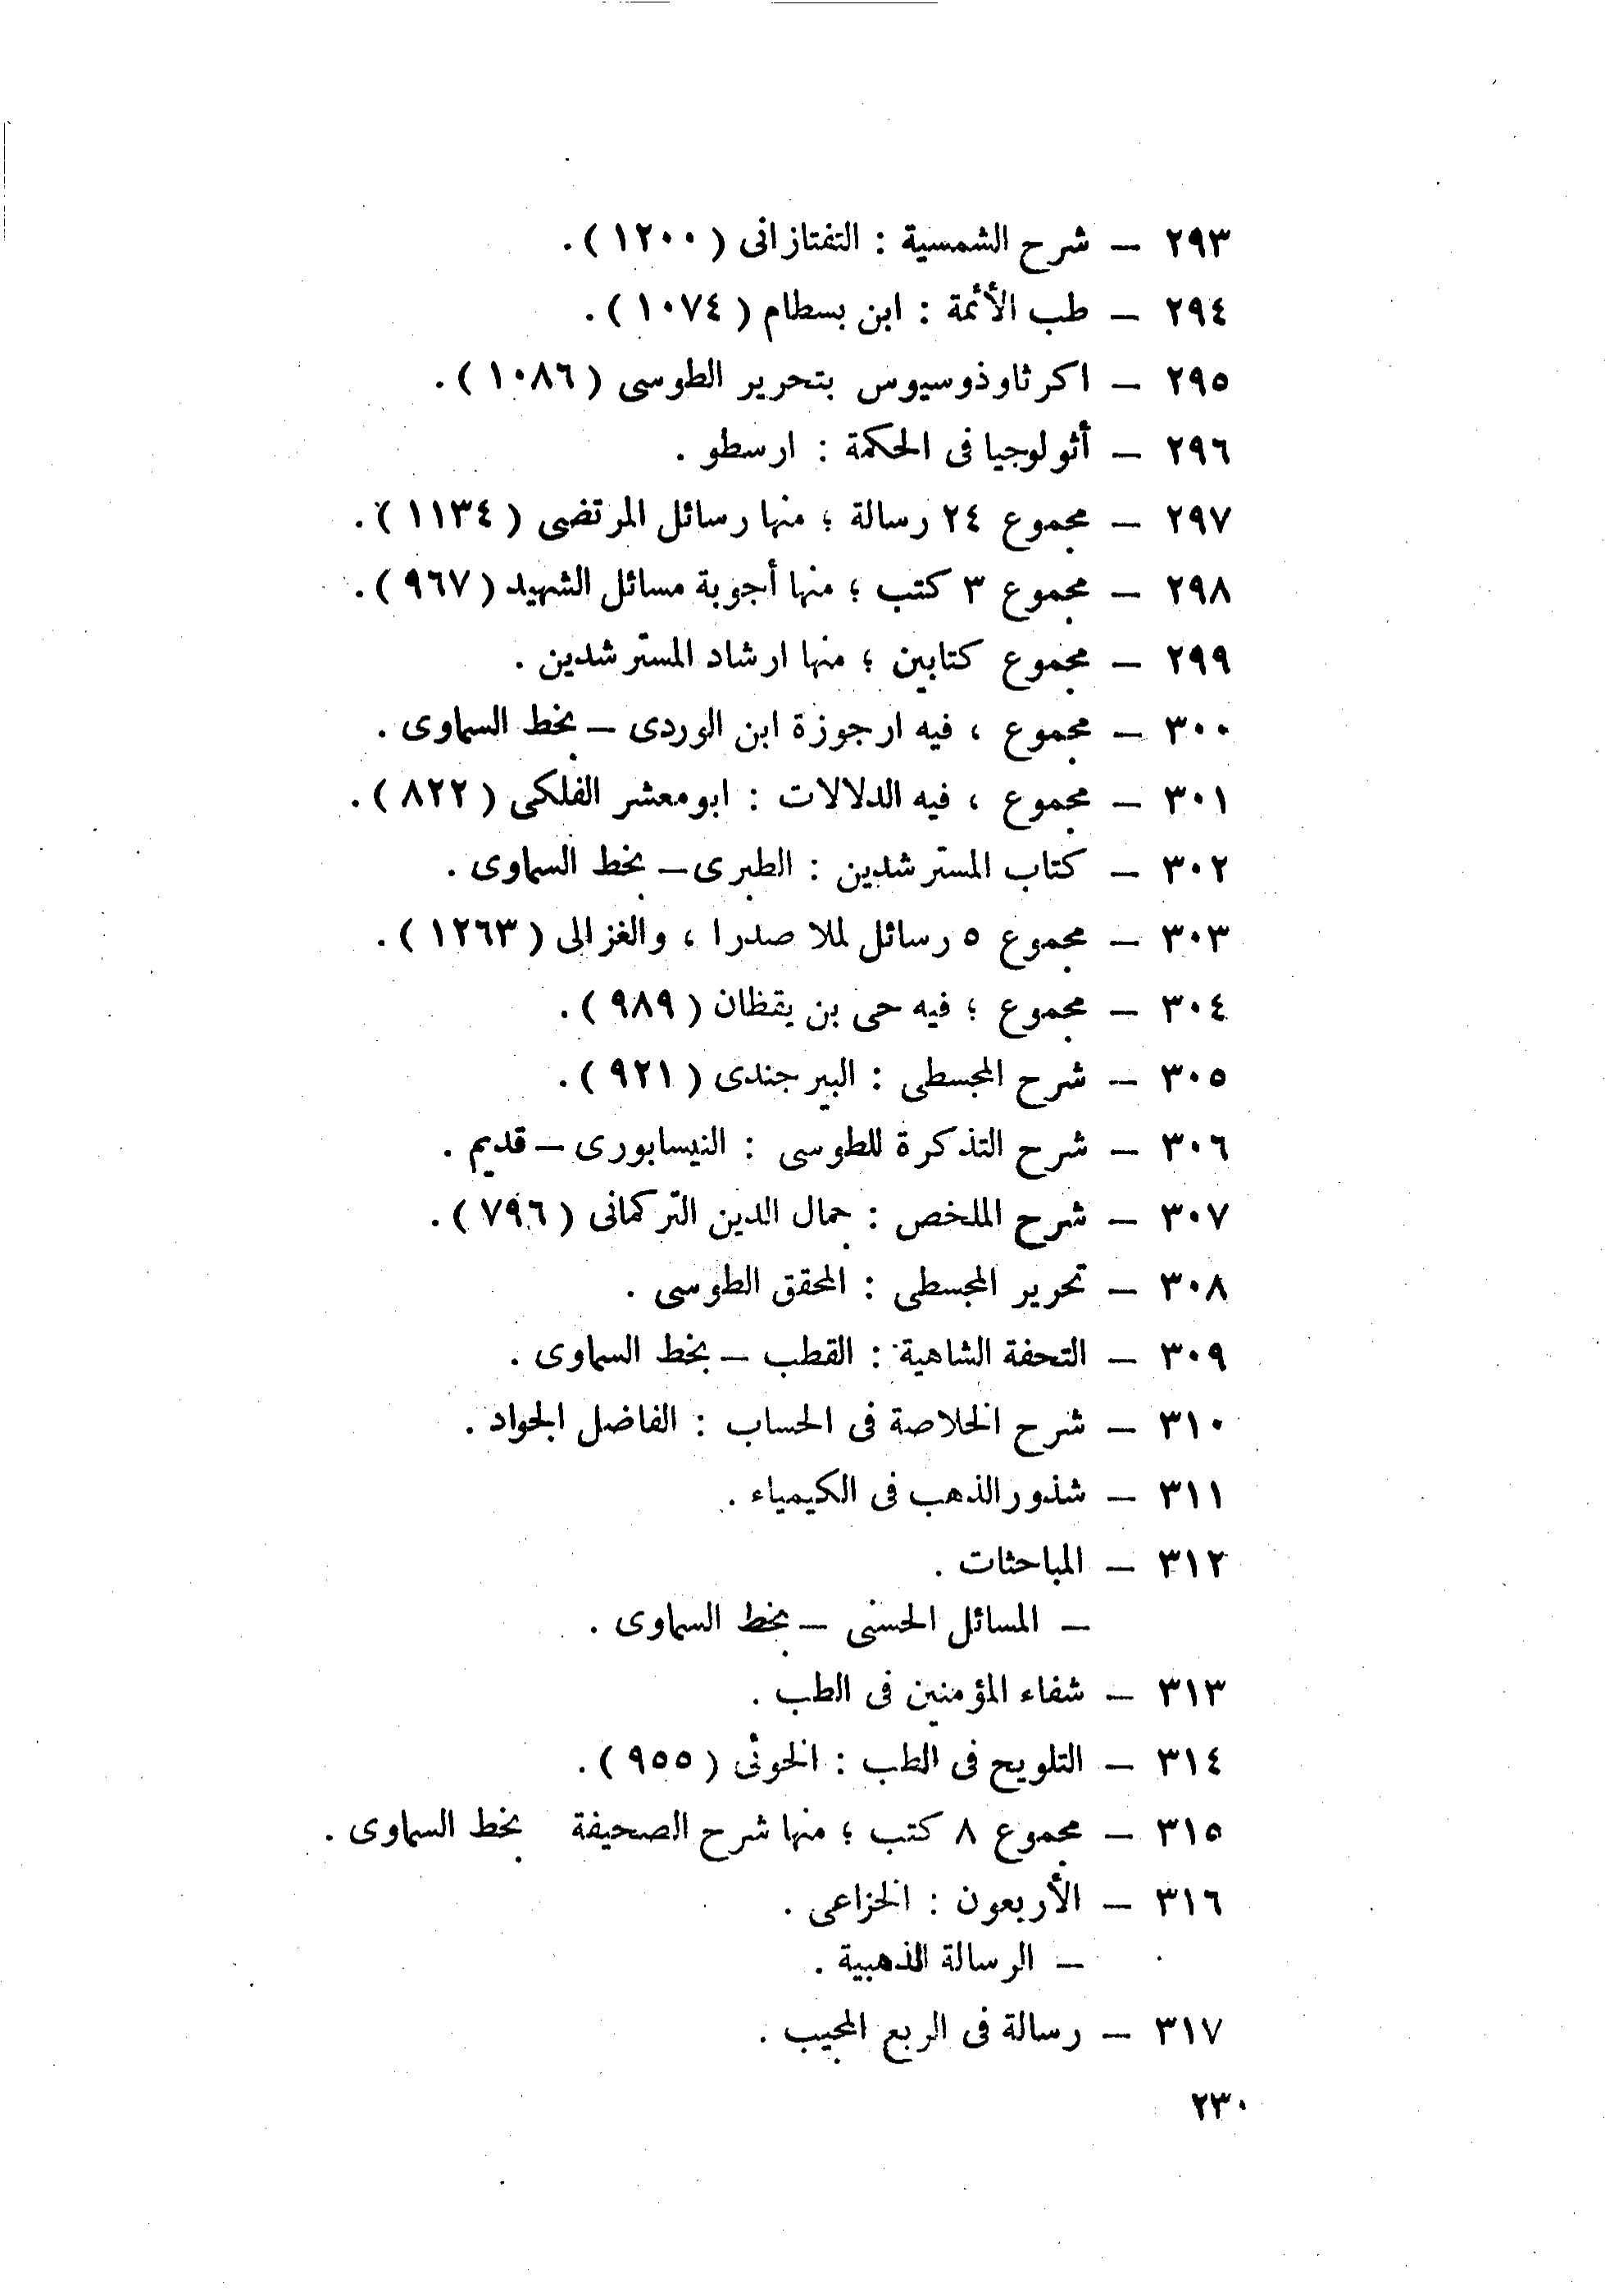 ٢٩٣ – شرح الشمسية : التفتازانى ( ١٢٠٠ ) .
٢٩٤ – طب الأئمة : ابن بسطام ( ١٠٧٤ ) .
٢٩٥ – اكر ثاوذوسيوس بتحرير الطوسى ( ١٠٨٦ ) .
٢٩٦ – أثولوجيا فى الحكمة : ارسطو .
٢٩٧ – مجموع ٢٤ رسالة ؛ منها رسائل المرتضى ( ١١٣٤ ) .
٢٩٨ – مجموع ٣ كتب ؛ منها أجوبة مسائل الشهيد ( ٩٦٧ ) .
٢٩٩ – مجموع كتابين ؛ منها ارشاد المسترشدين .
٣٠٠ – مجموع ، فيه ارجوزة ابن الوردى – بخط السماوى .
٣٠١ – مجموع ، فيه الدلالات : ابومعشر الفلكى ( ٨٢٢ ) .
٣٠٢ – كتاب المسترشدين : الطبرى – بخط السماوى .
٣٠٣ – مجموع ٥ رسائل لملا صدرا ، والغزالى ( ١٢٦٣ ) .
٣٠٤ – مجموع ؛ فيه حى بن يقظان ( ٩٨٩ ) .
٣٠٥ – شرح المجسطى : البيرجندى ( ٩٢١ ) .
٣٠٦ – شرح التذكرة للطوسى : النيسابورى – قديم .
٣٠٧ – شرح الملخص : جمال الدين التركمانى ( ٧٩٦ ) .
٣٠٨ – تحرير المجسطى : المحقق الطوسى .
٣٠٩ – التحفة الشاهية : القطب – بخط السماوى .
٣١٠ – شرح الخلاصة فى الحساب : الفاضل الجواد .
٣١١ – شذور الذهب فى الكيمياء .
٣١٢ – المباحثات .
– المسائل الحسنى – بخط السماوى .
٣١٣ – شفاء المؤمنين فى الطب .
٣١٤ – التلويح فى الطب : الخوئى ( ٩٥٥ ) .
٣١٥ – مجموع ٨ كتب ؛ منها شرح الصحيفة بخط السماوى .
٣١٦ – الأربعون : الخزاعى .
– الرسالة الذهبية .
٣١٧ – رسالة فى الربع المجيب .
٢٣٠